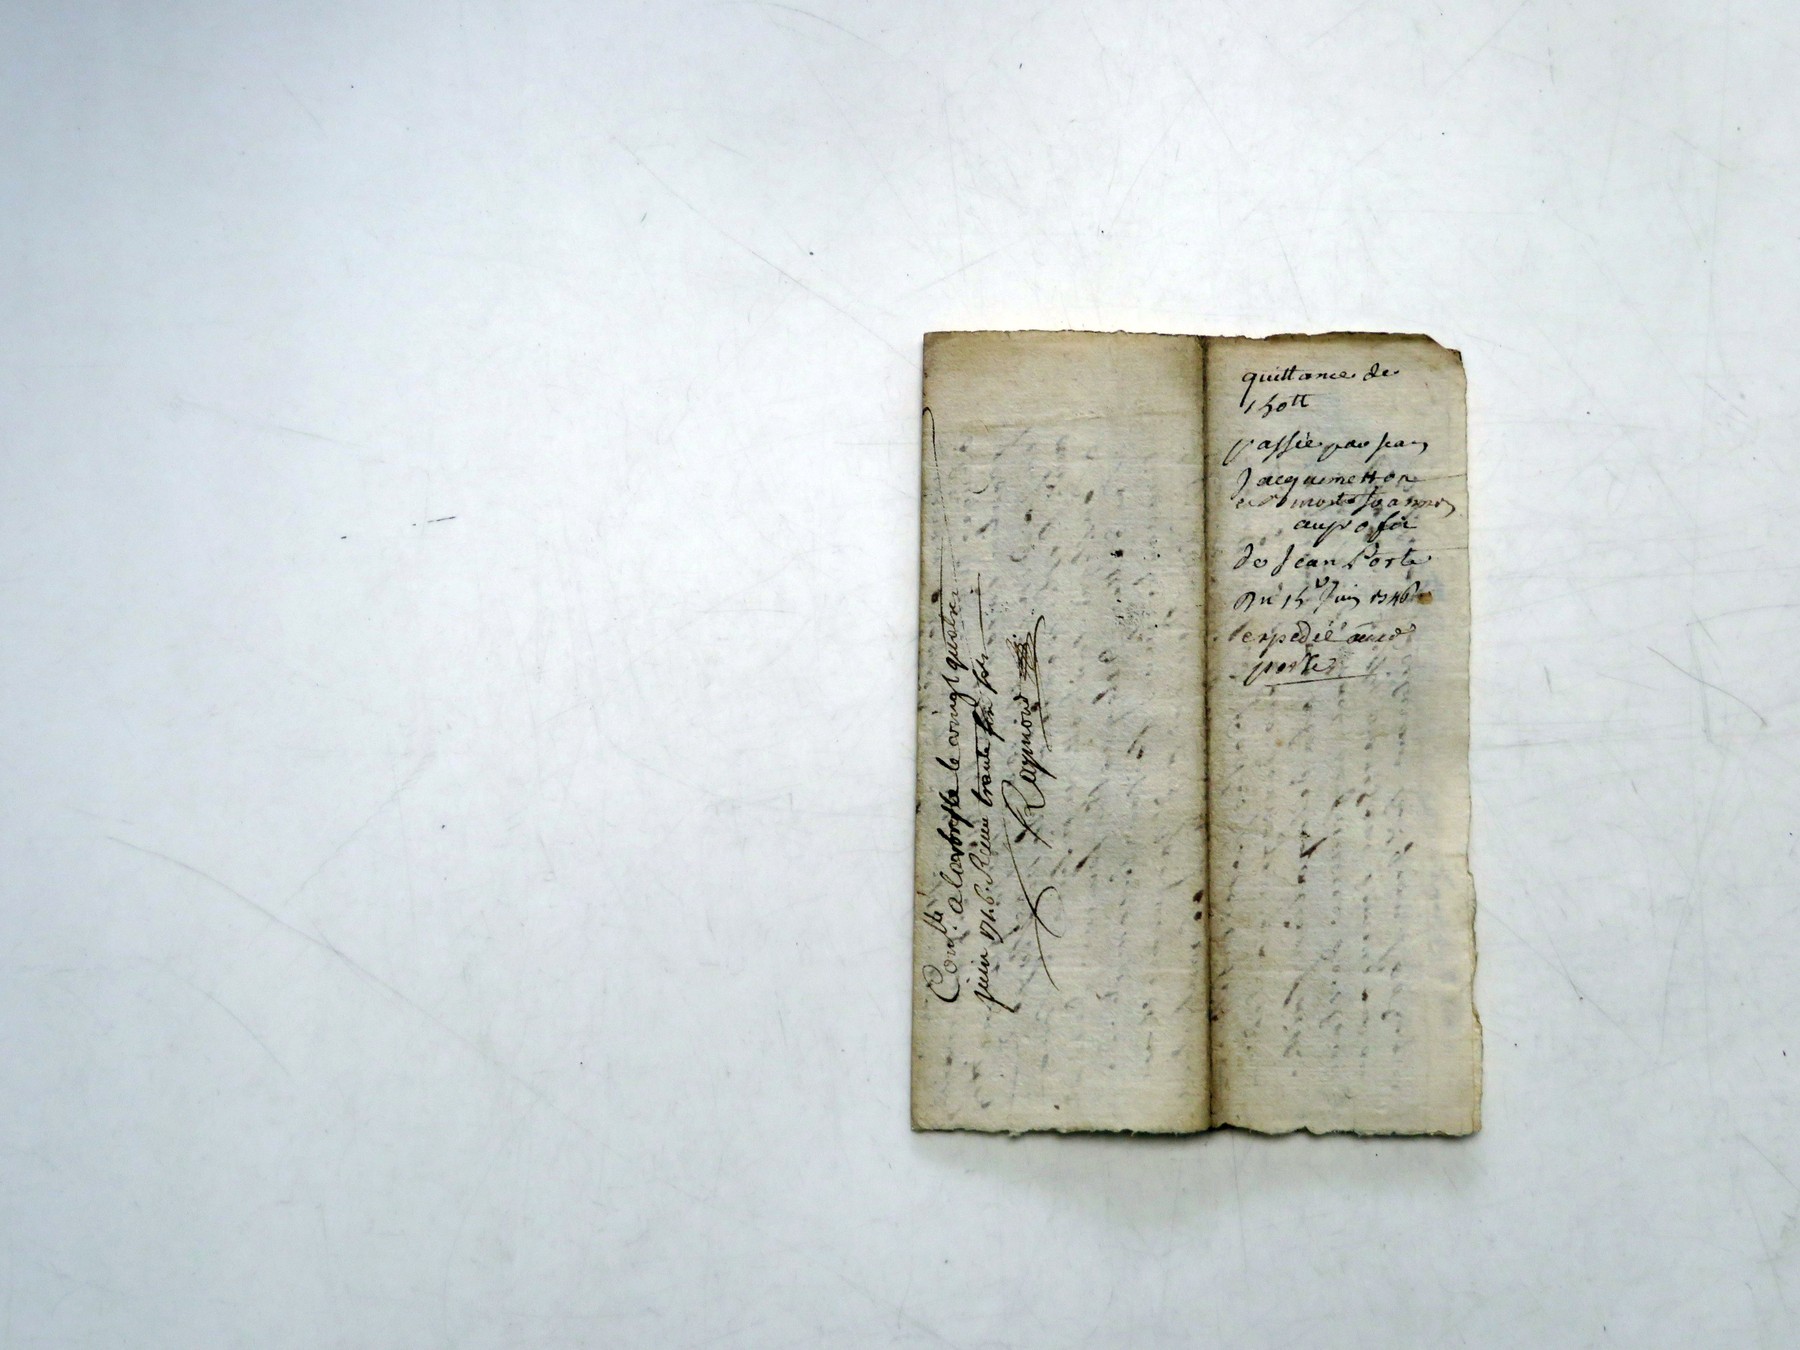 quittance de
150tt
passée par Jean
Jacquemetton
au profit
de Jean Porte
Du 15e Juin 1746
expedié audt
porte
Conlé. a larbresle le vingt quatre
juin 1746. Receu trente six sols
Raymond